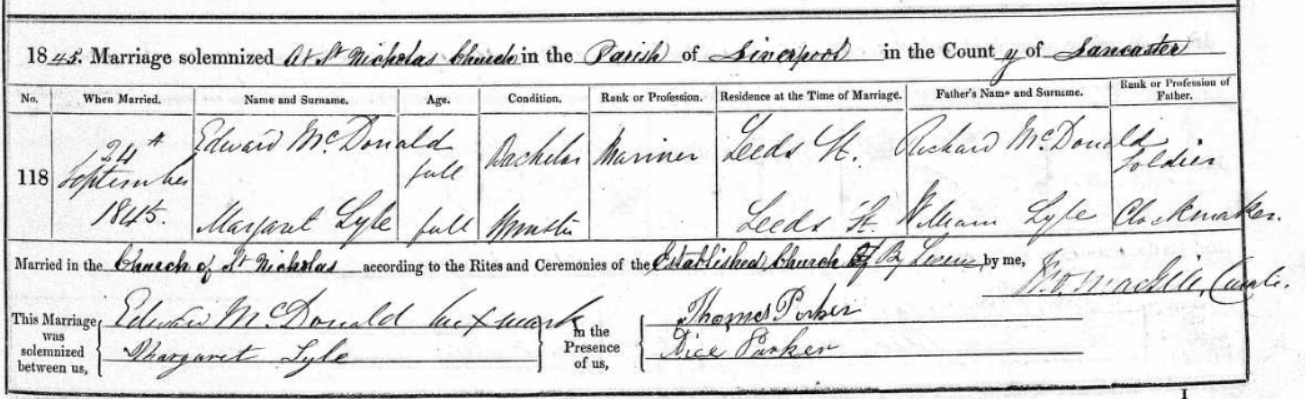 1845. Marriage solemnized At St Nicholas Church in the Parish of Liverpool in the County of Lancaster
No. When Married. Name and Surname. Age. Condition. Rank or Profession. Residence at the Time of Marriage. Father's Name and Surname. Rank or Profession of Father.
118 24th September 1845. Edward McDonald full Bachelor Mariner Leeds St. Richard McDonald Soldier
Margaret Lyle full Spinster Leeds St. William Lyle Clockmaker.
Married in the Church of St Nicholas according to the Rites and Ceremonies of the Established Church By by me,
This Marriage was solemnized between us, Edward McDonald his x mark In the Presence of us, Thomas Parker
Margaret Lyle Parker
1